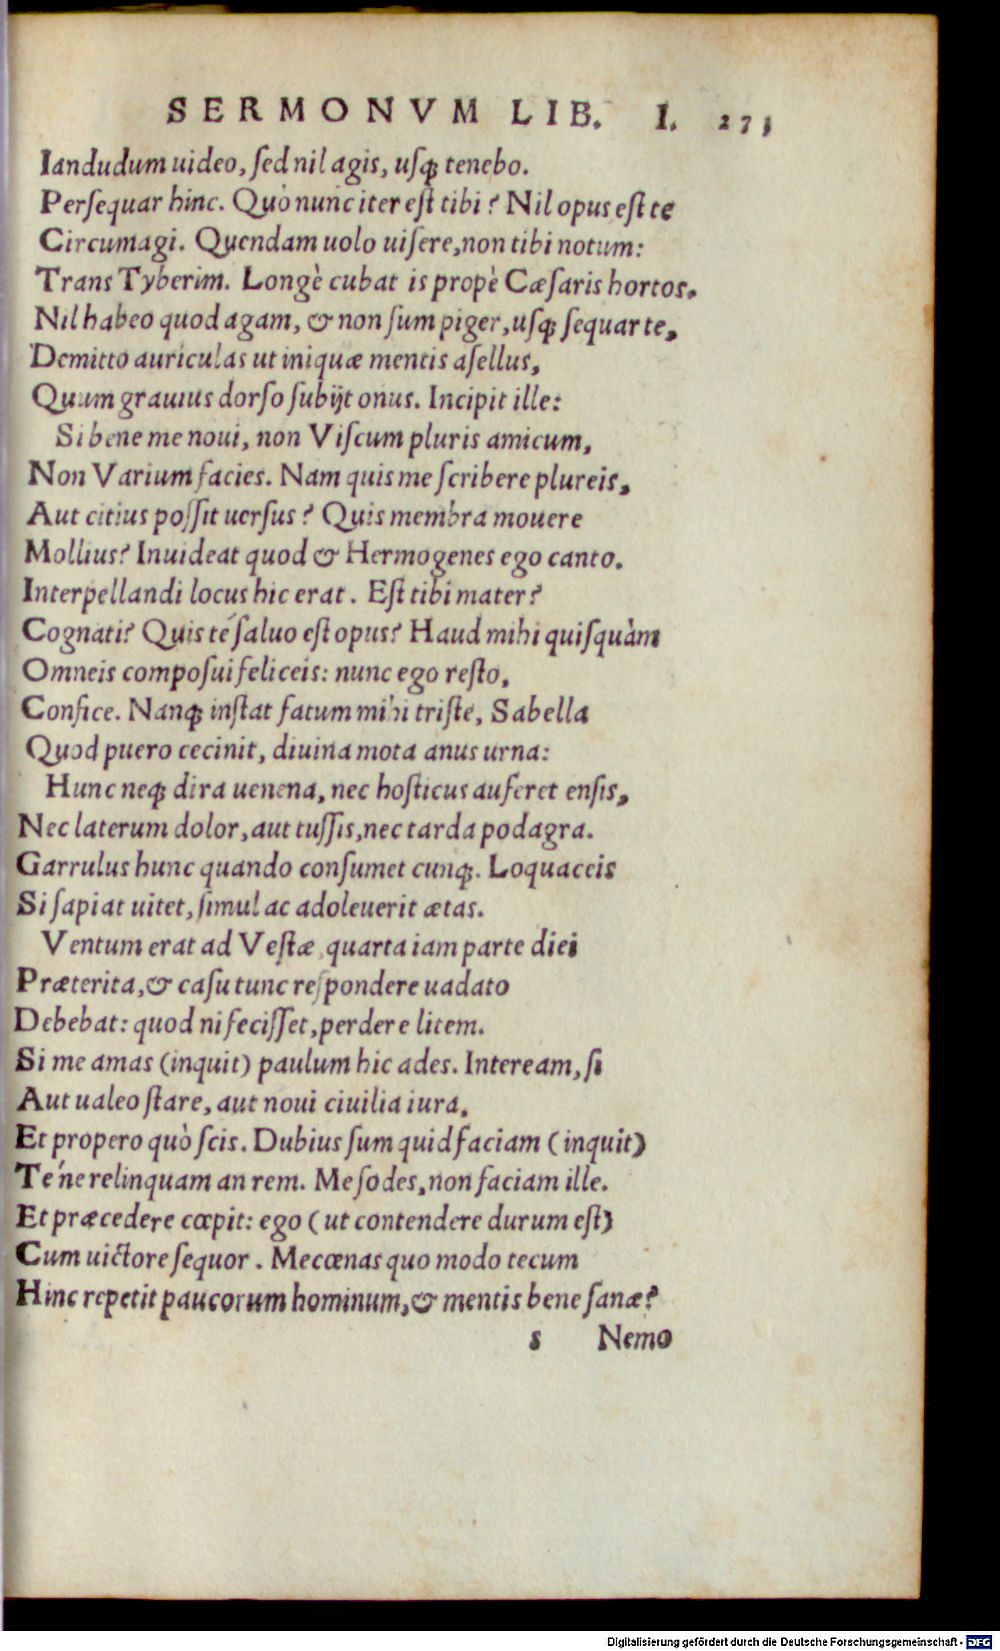 SERMONVM LIB. I. 273
Iandudum uideo, ſed nil agis, uſq; tenebo.
Perſequar hinc. Quò nunc iter eſt tibi? Nil opus eſt te
Circumagi. Quendam uolo uiſere, non tibi notum:
Trans Tyberim. Longè cubat is propè Cæſaris hortos.
Nil habeo quod agam, & non ſum piger, uſq; ſequar te,
Demitto auriculas ut iniquæ mentis aſellus,
Quum grauius dorſo ſubijt onus. Incipit ille:
Si bene me noui, non Viſcum pluris amicum,
Non Varium facies. Nam quis me ſcribere plureis,
Aut citius poſſit uerſus? Quis membra mouere
Mollius? Inuideat quod & Hermogenes ego canto.
Interpellandi locus hic erat. Eſt tibi mater?
Cognati? Quis té ſaluo eſt opus? Haud mihi quiſquàm
Omneis compoſui feliceis: nunc ego reſto,
Confice. Nanq; inſtat fatum mihi triſte, Sabella
Quod puero cecinit, diuina mota anus urna:
Hunc neq; dira uenena, nec hoſticus auferet enſis,
Nec laterum dolor, aut tuſſis, nec tarda podagra.
Garrulus hunc quando conſumet cunq;. Loquaceis
Si ſapiat uitet, ſimul ac adoleuerit ætas.
Ventum erat ad Veſtæ, quarta iam parte diei
Præterita, & caſu tunc reſpondere uadato
Debebat: quod ni feciſſet, perdere litem.
Si me amas (inquit) paulum hic ades. Inteream, ſi
Aut ualeo ſtare, aut noui ciuilia iura,
Et propero quò ſcis. Dubius ſum quid faciam (inquit)
Té ne relinquam an rem. Me ſodes, non faciam ille.
Et præcedere cœpit: ego (ut contendere durum eſt)
Cum uictore ſequor. Mecœnas quo modo tecum
Hinc repetit paucorum hominum, & mentis bene ſanæ?
s Nemo
Digitalisierung gefördert durch die Deutsche Forschungsgemeinschaft - DFG